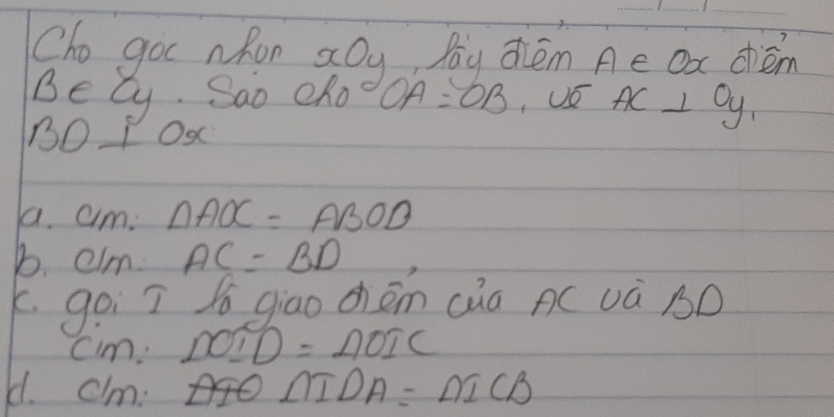 Cho góc nhọn xOy, lấy điểm A ∈ Ox điểm
B ∈ Oy. Sao cho OA = OB, vẽ AC ⊥ Oy,
BD ⊥ Ox
a. c/m: ΔAOC = ΔBOD
b. c/m: AC = BD
c. gọi I là giao điểm của AC và BD
c/m: ΔOID = ΔOIC
d. c/m: ΔIDA = ΔICB